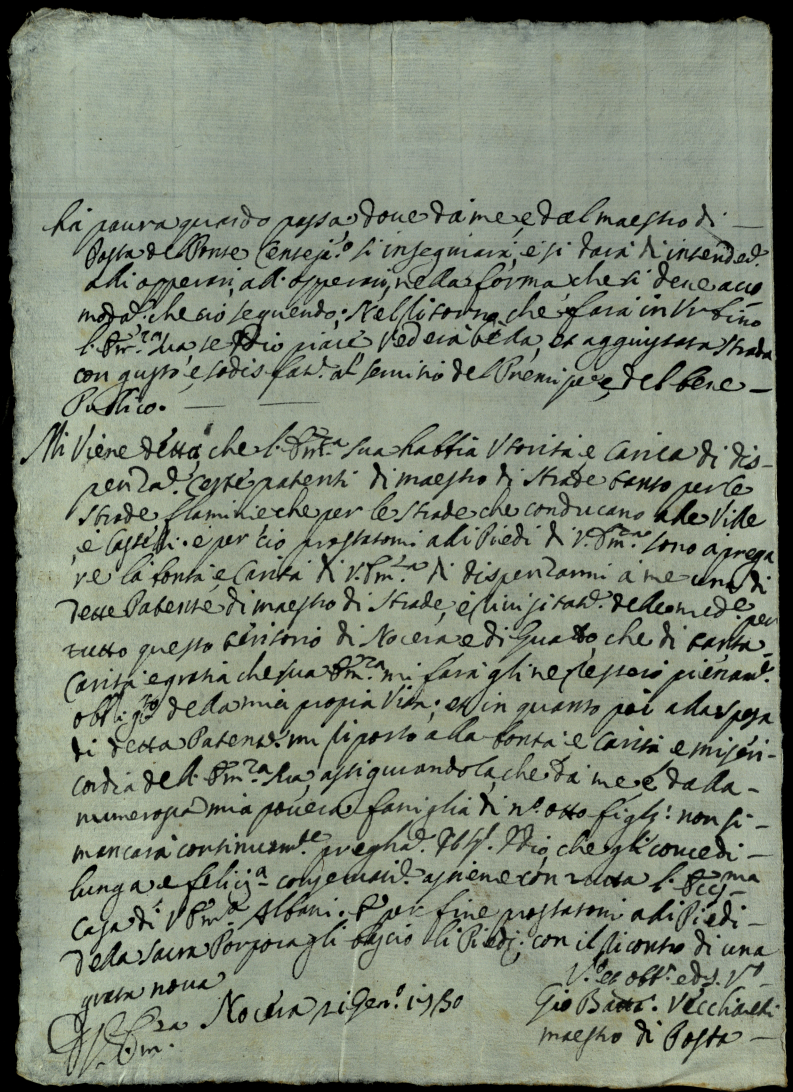 hà paura quando passa dove da me, e dal maestro di
Posta del Ponte Centesi.o si insegniarà, e si darà di intender.
alli opperari, all. opperari, nella forma che si deve acco
modar. che ciò seguendo. Nel ritorno che farà in Urbino
l. Em.za Sua se Iddio piace vederà bella, et aggiustata strada
con gusto, e sodisfat.e al servitio del e del bene
Publico.
Mi viene detto che l. Em.za Sua habbia e carica di dis-
penzar. certe patenti di maestro di strade tanto per le
strade flaminie che per le strade che conducano alle Ville
e Castelli. e per ciò prostatomi alli Piedi di V. Em.za sono a prega
re la bontà, e Carità di V. Em.za di dispenzarmi à me una di
dette Patente di maestro di strade, e delle med.e per
tutto questo teritorio di Nocera, e di Gualdo, che di tanta
Carità e gratia che sua Em.za mi farà gli ne pienam.e
oblig.to della mia propia Vita; et in quanto poi alla spesa
di detta Patente. mi riporto alla bontà e Carità e miseri-
cordia dell. Em.za Sua, assiguiandola, che da me, e dalla
numerosa mia povera famiglia di n.o otto figli. non si
mancarà continuam.te preghar. Iddio, che gli concedi
lunga e felici.a conservati.e assieme con tutta l. Ecc.ma
Casa di V. Em.za Albani. E per fine prostatomi alli Piedi
della Sacra Porpora gli bascio li Piedi, con il di una
grata nova
V. Em.za Nocera 21 Gen.o 1730
V.o et obb.o ed s. V.o
Gio Batta. Vecchiarelli
maestro di Posta